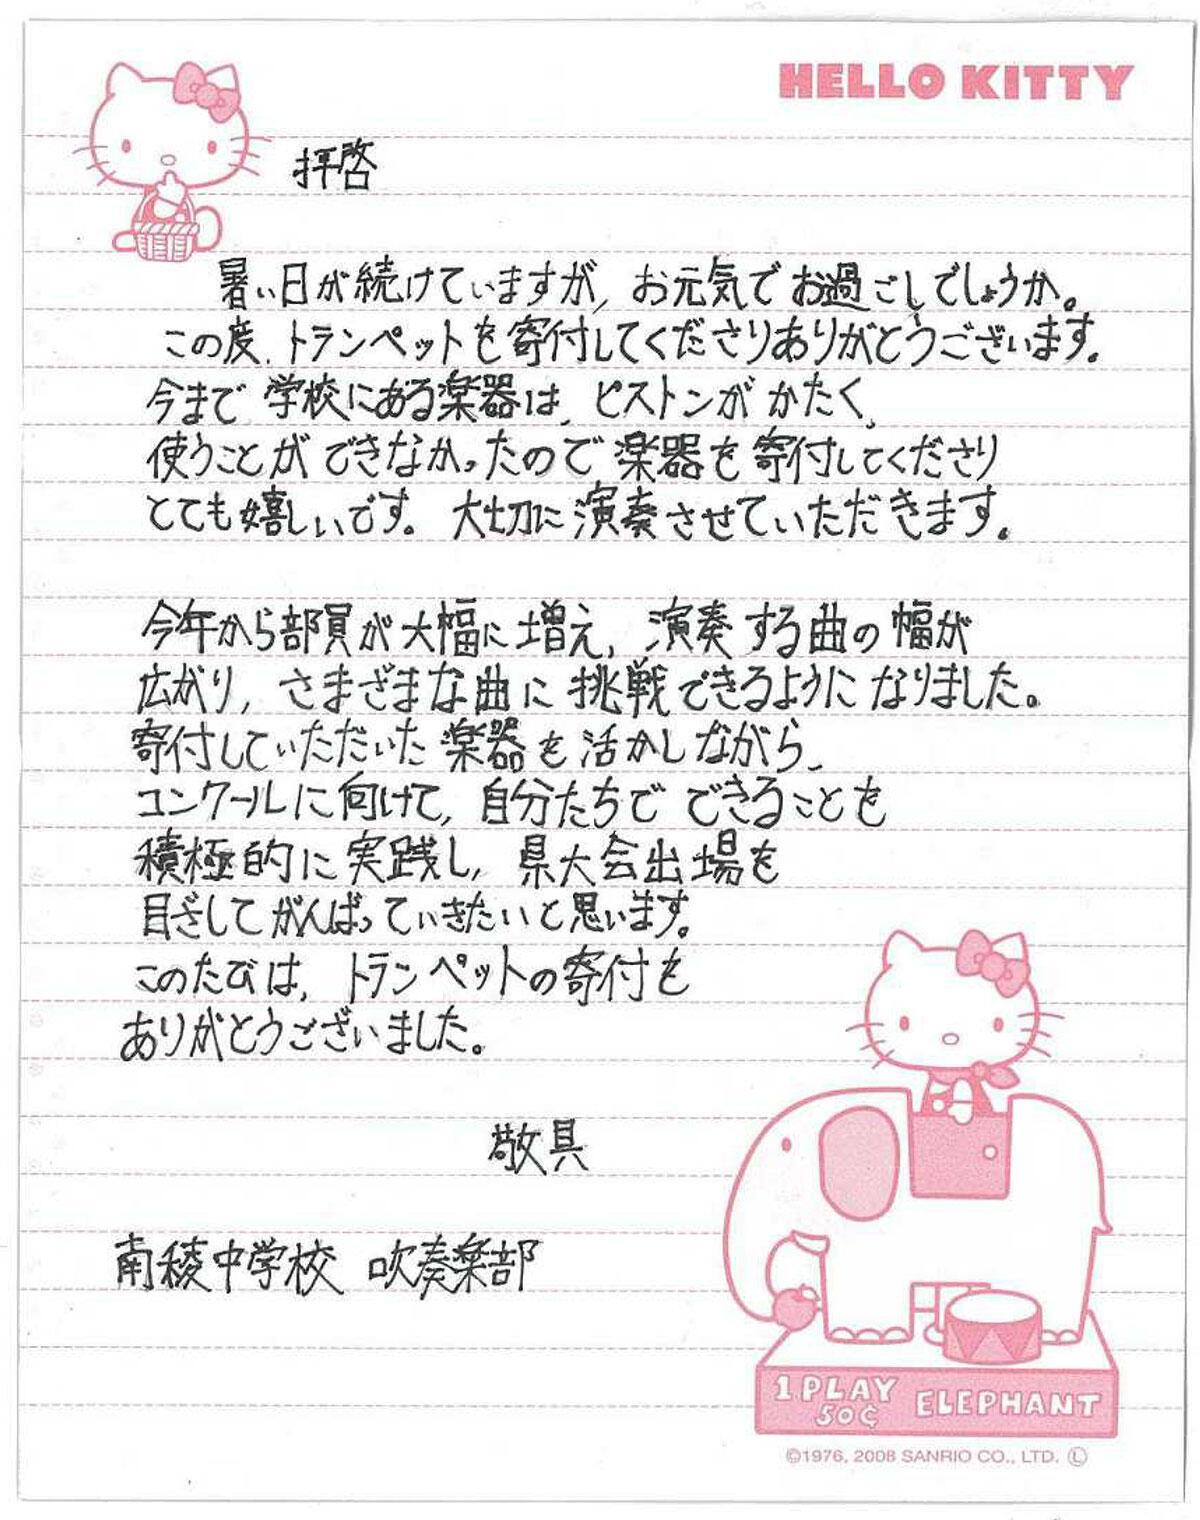 HELLO KITTY
拝啓
暑い日が続けていますが, お元気でお過ごしでしょうか。
この度、トランペットを寄付してくださりありがとうございます。
今まで 学校にある楽器は、ピストンが かたく、
使うことが できなかったので 楽器を 寄付してくださり
とても嬉しいです。 大切に演奏させていただきます。
今年から部員が大幅に増え, 演奏する曲の幅が
広がり, さまざまな曲に 挑戦できるように なりました。
寄付していただいた 楽器を 活かしながら、
コンクールに向けて, 自分たちで できることを
積極的に実践し, 県大会出場を
目ざして がんばっていきたいと思います。
このたびは, トランペットの寄付を
ありがとうございました。
敬具
南稜中学校 吹奏楽部
1 PLAY 50¢ ELEPHANT
©1976, 2008 SANRIO CO., LTD. Ⓛ